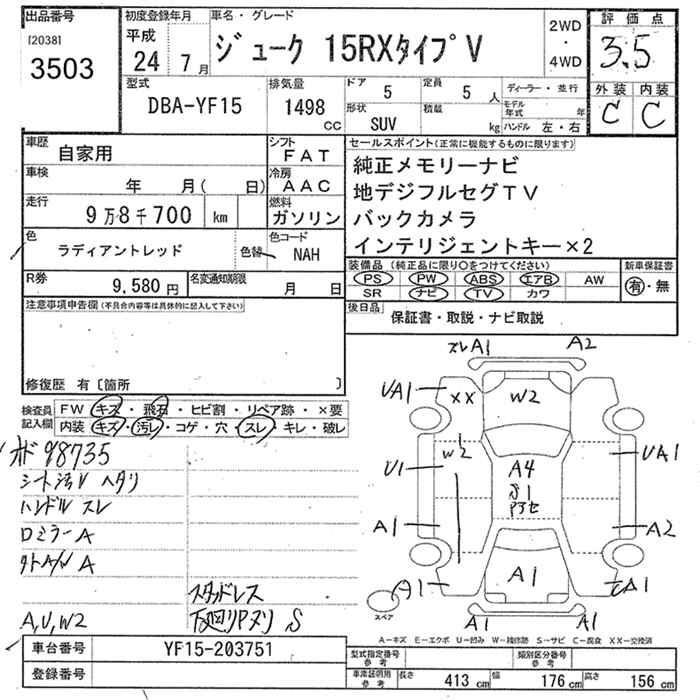 出品番号
[2038]
3503
初度登録年月
平成
24年 7月
車名・グレード
ジューク 15RXタイプV
2WD
・
4WD
評価点
3.5
外装 内装
C C
型式
DBA-YF15
排気量
1498
CC
ドア 5
定員 5 人
形状 SUV
積載 kg
ディーラー・並行
モデル年式 年
ハンドル 左・右
車歴
自家用
シフト
FAT
車検
年 月( 日)
冷房
AAC
走行
9万8千700 km
燃料
ガソリン
色
ラディアントレッド
色替
色コード
NAH
R券
9,580 円
名変通知期限
月 日
セールスポイント(正常に機能するものに限ります)
純正メモリーナビ
地デジフルセグTV
バックカメラ
インテリジェントキー×2
装備品 (純正品に限り○をつけてください)
PS PW ABS エアB AW
SR ナビ TV カワ
新車保証書
有・無
後日品
保証書・取説・ナビ取説
注意事項申告欄(不具合内容等は具体的に記入して下さい)
修復歴 有〔箇所 〕
検査員記入欄
FW キズ・飛石・ヒビ割・リペア跡・×要
内装 キズ・汚レ・コゲ・穴・スレ・キレ・破レ
98735
シート汚レ ヘタリ
ハンドル スレ
ロミラーA
A
A,U,W2
スタッドレス
下廻りPヌリ S
スレA1 A2
UA1 XX W2
U1 W2 UA1
A4
S1
A1 A2
A1 A1 A1
A1 A1
スペア
A-キズ E-エクボ U-凹み W-補修跡 S-サビ C-腐食 XX-交換済
車台番号 YF15-203751
登録番号
型式指定番号
参考
類別区分番号
参考
車庫証明用
参考
長さ 413 cm 幅 176 cm 高さ 156 cm